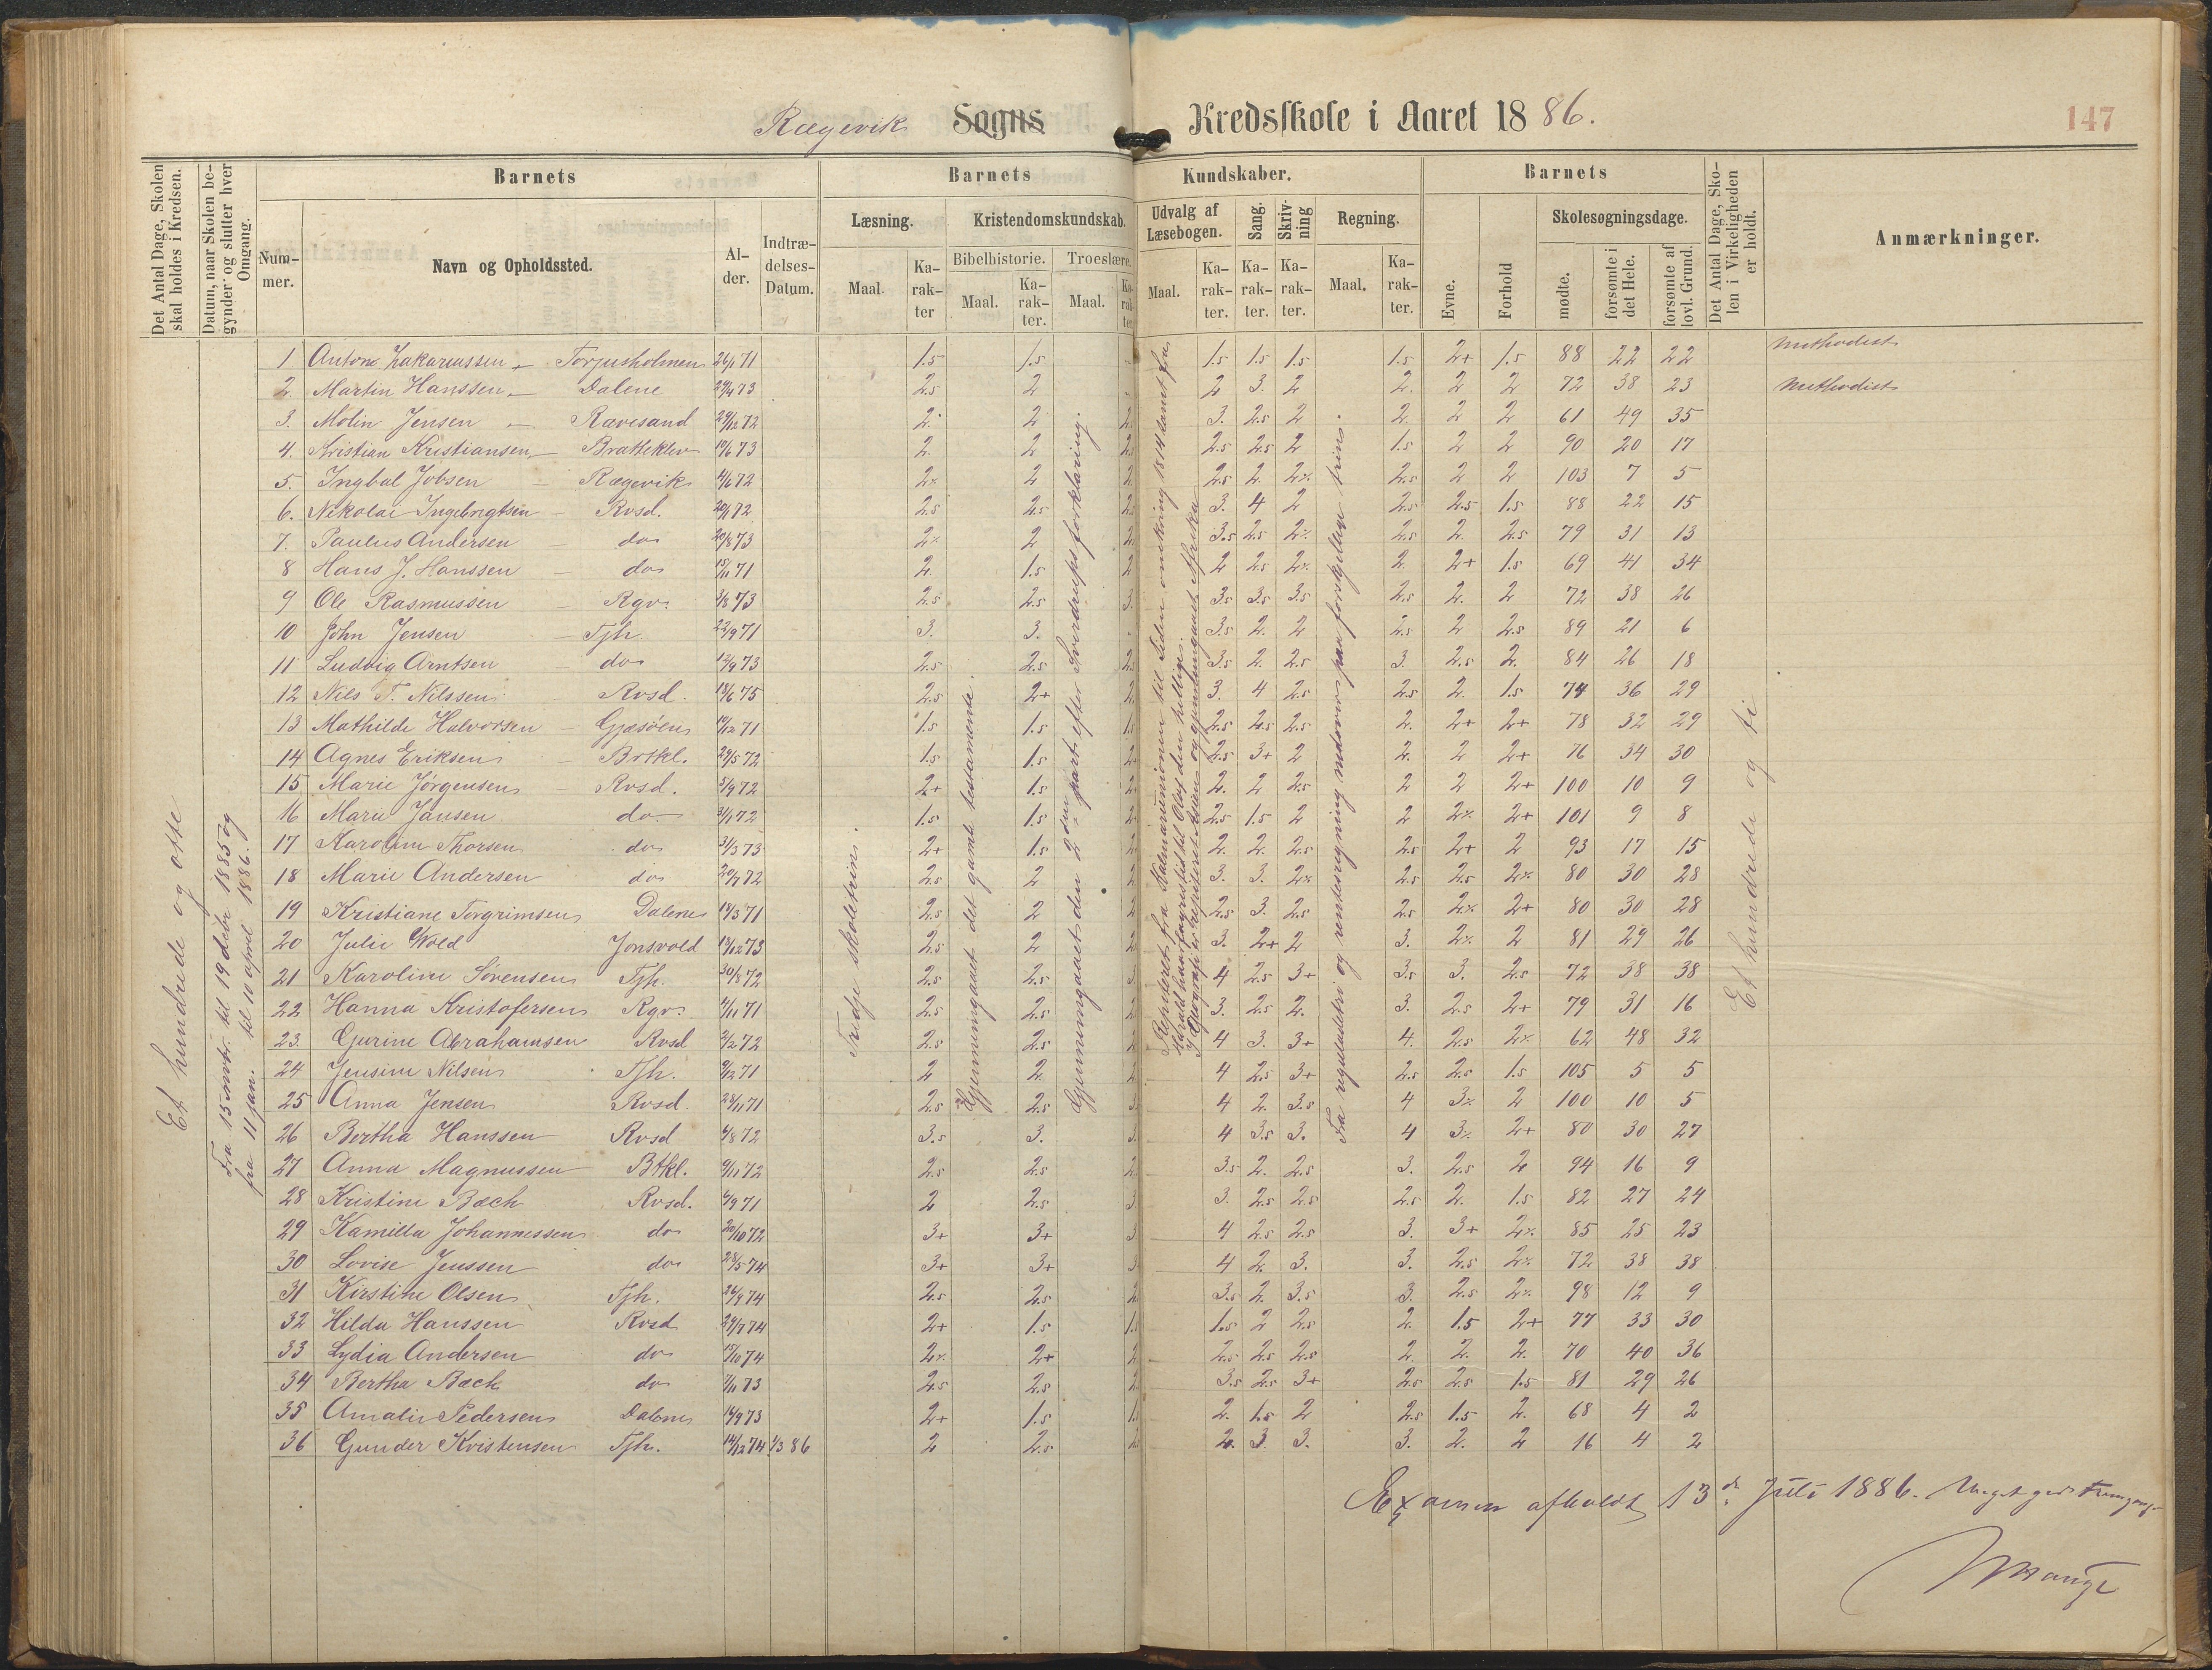 Rægevik Sogns Kredsskole i Aaret 1886.
147
Det Antal Dage, Skolen skal holdes i Kredsen.
Datum, naar Skolen begynder og slutter hver Omgang.
Barnets
Num-mer.
Navn og Opholdssted.
Al-der.
Indtræ-delses-Datum.
Barnets Kundskaber.
Læsning.
Maal.
Ka-rak-ter
Kristendomskundskab.
Bibelhistorie.
Maal.
Ka-rak-ter.
Troeslære.
Maal.
Ka-rak-ter
Udvalg af Læsebogen.
Maal.
Ka-rak-ter.
Sang.
Ka-rak-ter.
Skriv-ning
Ka-rak-ter.
Regning.
Maal.
Ka-rak-ter.
Barnets
Evne.
Forhold
Skolesøgningsdage.
mødte.
forsømte i det Hele.
forsømte af lovl. Grund.
Det Antal Dage, Sko-len i Virkeligheden er holdt.
Anmærkninger.
Et hundrede og otte
Fra 15 novbr. til 19 decbr 1885 og
fra 11 jan. til 10 april 1886.
Tredje skoletrin.
Gjennemgaaet det gamle testamente.
Gjennemgaaet den 2den part efter Sverdrups forklaring.
Repeteret fra Kalmarunionen til Tiden omkring 1814 samt fra
Harald haarfagres tid til Olaf den hellige.
I Geografi er repeteret Asien og gjennemgaaet Afrika
Fra reguladetri og rentesregning nedover paa forskjellige trin.
Et hundrede og ti
1 Anton Zakariassen - Torjusholmen 26/1 71 1.5 1.5 - 1.5 1.5 1.5 1.5 2+ 1.5 88 22 22 Methodist
2. Martin Hanssen - Dalene 29/4 73 2.5 2 - 2 3. 2 2. 2 2 72 38 23 Methodist
3. Molin Jensen - Rævesand 29/12 72 2. 2 2 3. 2.5 2 2. 2 2 61 49 35
4. Kristian Kristiansen - Bratteklev 10/6 73 2. 2 2.5 2.5 2.5 2 1.5 2 2 90 20 17
5. Ingbal Jobsen - Rægevik 4/6 72 2% 2 2 2.5 2. 2% 2.5 2 2 103 7 5
6. Nikolai Ingebrigtsen - Rvsd. 20/1 72 2.5 2.5 2.5 3. 4 2 2.5 2.5 1.5 88 22 15
7. Paulus Andersen - do 20/8 73 2% 2 2. 3.5 2.5 2% 2.5 2. 2.5 79 31 13
8 Hans J. Hanssen - do 15/11 71 2. 1.5 2 2 2.5 2% 2. 2+ 1.5 69 41 34
9 Ole Rasmussen - Rgv. 3/8 73 2.5 2.5 3. 3.5 3.5 3.5 2.5 2. 2 72 38 26
10 John Jensen - Tjh. 22/9 71 3. 3. - 3.5 2. 2 2.5 2 2.5 89 21 6
11 Ludvig Arntsen - do 12/9 73 2.5 2.5 2. 3.5 2. 2.5 3. 2.5 2. 84 26 18
12 Nils T. Nilssen - Rvsd. 18/6 75 2.5 2+ 2. 3. 4 2.5 2.5 2. 1.5 74 36 29
13 Mathilde Halvorsen - Gjesøen 19/12 71 1.5 1.5 1.5 2.5 2.5 2.5 2. 2+ 2+ 78 32 29
14 Agnes Eriksen - Brtkl. 29/5 72 1.5 1.5 2+ 2.5 3+ 2 2. 2 2+ 76 34 30
15 Marie Jörgensen - Rvsd. 5/9 72 2+ 1.5 2+ 2. 2 2.5 2 2 2+ 100 10 9
16 Marie Jansen do 31/1 72 1.5 1.5 2. 2.5 1.5 2 2 2% 2+ 101 9 8
17 Karoline Thorsen do 31/3 73 2+ 1.5 2. 2. 2. 2.5 2.5 2+ 2 93 17 15
18 Marie Andersen do 20/7 72 2.5 2 2. 3. 3. 2% 2.5 2.5 2% 80 30 28
19 Kristiane Torgrimsen Dalene 18/3 71 2.5 2 2. 2.5 3. 2.5 2.5 2% 2+ 80 30 28
20 Julie Wold Jonsvold 19/12 73 2.5 2 2. 3. 2+ 2 3. 2% 2 81 29 26
21 Karoline Sörensen Tjh. 30/8 72 2.5 2.5 3. 4 2.5 3+ 3.5 3. 2.5 72 38 38
22 Hanna Kristofersen Rgv. 4/11 71 2.5 2.5 2. 3. 2.5 2. 3. 2.5 2+ 79 31 16
23. Gurine Abrahamsen Rvsd 2/2 72 2.5 2.5 2 4 3. 3+ 4. 2.5 2% 62 48 32
24 Jensine Nilsen Tjh. 9/12 71 2 2. 2. 4 2.5 3+ 2.5 2.5 1.5 105 5 5
25 Anna Jensen Rvsd. 28/11 71 2.5 2.5 3. 4 2. 3.5 4 3% 2 100 10 5
26 Bertha Hanssen Rvsd 4/8 72 3.5 3. 3. 4 3.5 3. 4 3% 2+ 80 30 27
27 Anna Magnussen Btkl. 9/11 72 2.5 2.5 2. 3.5 2. 2.5 3. 2.5 2 94 16 9
28 Kristine Bach Rvsd. 4/9 71 2 2.5 3 3. 2.5 2.5 2.5 2. 1.5 82 27 24
29 Kamilla Johannessen do 20/10 72 3+ 3+ 3. 4 2.5 2.5 3. 3+ 2% 85 25 23
30 Lovise Jenssen do 28/5 74 3+ 3+ 3. 4 2. 3. 3. 2.5 2% 72 38 38
31 Kirstine Olsen Tjh. 26/9 74 2.5 2.5 2. 3.5 2. 3.5 3. 2.5 2% 98 12 9
32 Hilda Hanssen Rvsd 29/7 74 2+ 1.5 1.5 1.5 2 2.5 2. 1.5 2+ 77 33 30
33 Lydia Andersen do 15/10 74 2% 2+ 2 2.5 2.5 2.5 2. 2. 2. 70 40 36
34 Bertha Bach do 7/11 73 2.5 2.5 2. 3.5 2.5 3+ 2.5 2.5 1.5 81 29 26
35 Amalie Pedersen Dalene 14/9 73 2+ 1.5 1. 2. 1.5 2 2.5 1.5 2. 68 4 2
36 Gunder Kristensen Tjh. 14/12 74 1/3 86 2 2.5 2. 2. 3. 3. 3. 2. 2 16 4 2
Examen afholdt 13de Juli 1886. Meget god Fremgang.